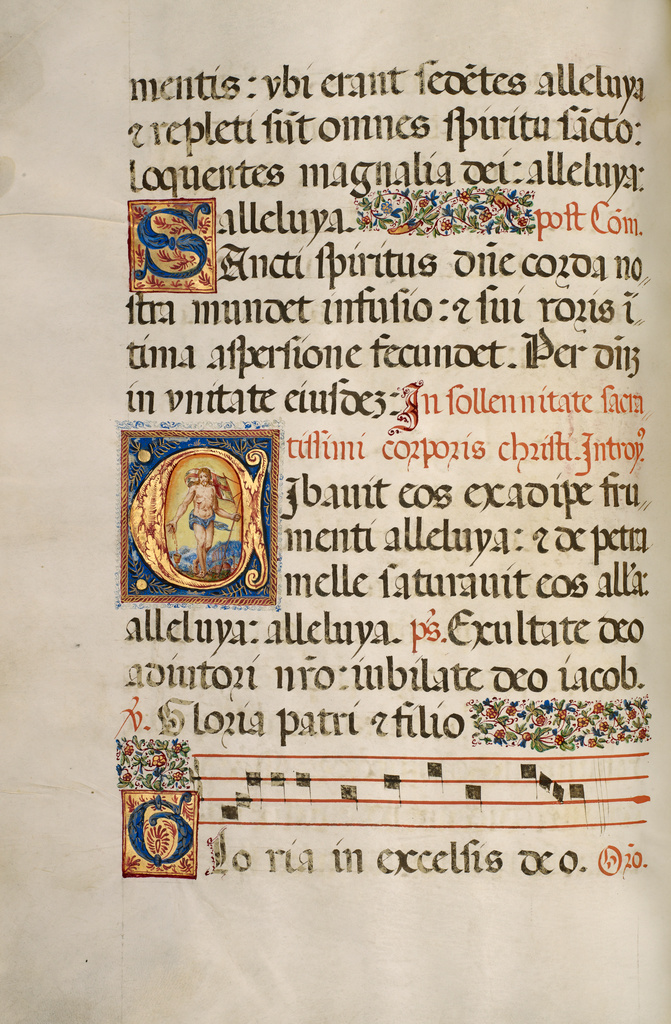 mentis: vbi erant sedētes alleluya
⁊ repleti sūt omnes spiritu sācto:
loquentes magnalia dei: alleluya:
alleluya. post Cōm.
SAncti spiritus dñe corda no„
stra mundet infusio: ⁊ sui roris ī„
tima aspersione fecundet. Per dñʒ
in vnitate eiusdeʒ: In sollennitate sacra
tissimi corporis christi. Introyꝰ
Cibauit eos ex adipe fru„
menti alleluya: ⁊ de petra
melle saturauit eos all'a:
alleluya: alleluya. ps. Exultate deo
adiutori nr̄o: iubilate deo iacob.
℣. Gloria patri ⁊ filio
Glo ria in excelsis deo. Orō.